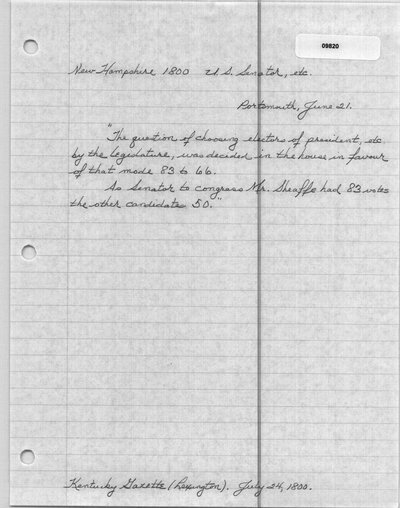 09820
New Hampshire 1800 U.S. Senator, etc.
Portsmouth, June 21.
"The question of choosing electors of president, etc
by the legislature, was decided in the house in favour
of that mode 83 to 66.
As Senator to congress Mr. Sheaffe had 83 votes
the other candidates 50."
Kentucky Gazette (Lexington). July 24, 1800.